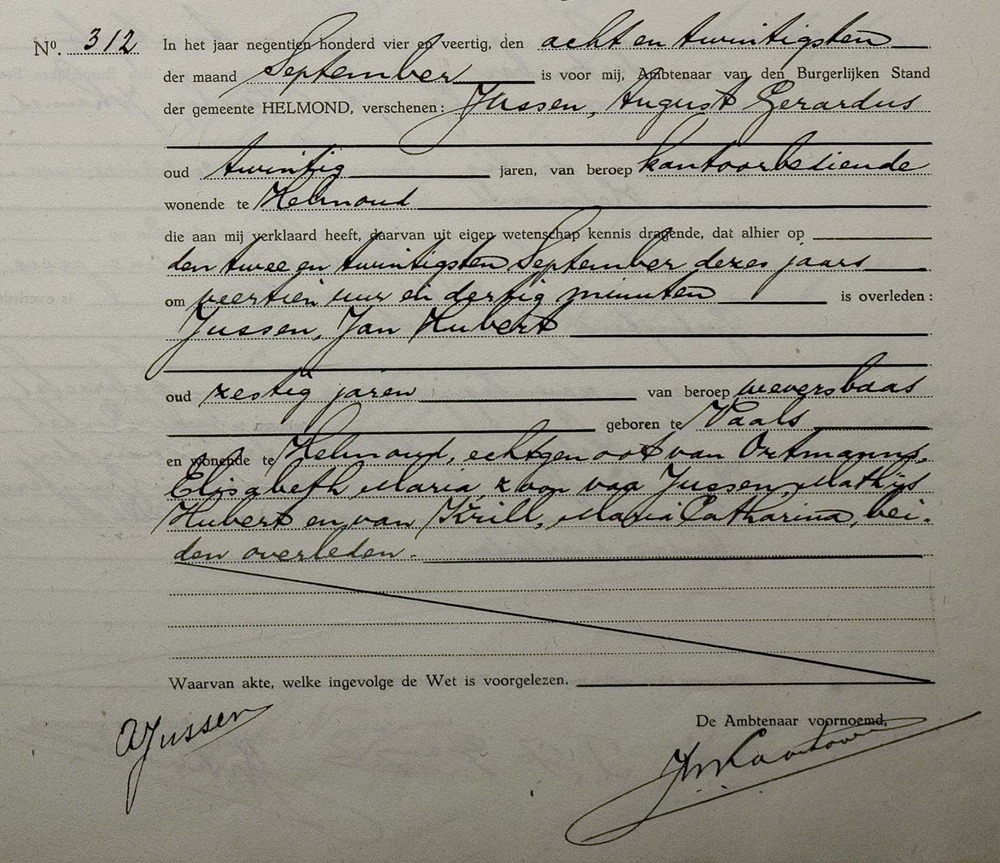 No. 312 In het jaar negentien honderd vier en veertig, den acht en twintigsten
der maand September is voor mij, Ambtenaar van den Burgerlijken Stand
der gemeente HELMOND, verschenen: Jussen, August Gerardus
oud twintig jaren, van beroep kantoorbediende
wonende te Helmond
die aan mij verklaard heeft, daarvan uit eigen wetenschap kennis dragende, dat alhier op
den twee en twintigsten September dezes jaars
om veertien uur en dertig minuten is overleden:
Jussen, Jan Hubert
oud zestig jaren van beroep weversbaas
geboren te Vaals
en wonende te Helmond, echtgenoot van Ortmanns,
Elisabeth Maria, zoon van Jussen, Mathijs
Hubert en van Krill, Maria Catharina, bei-
den overleden.
Waarvan akte, welke ingevolge de Wet is voorgelezen.
De Ambtenaar voornoemd,
AJussen